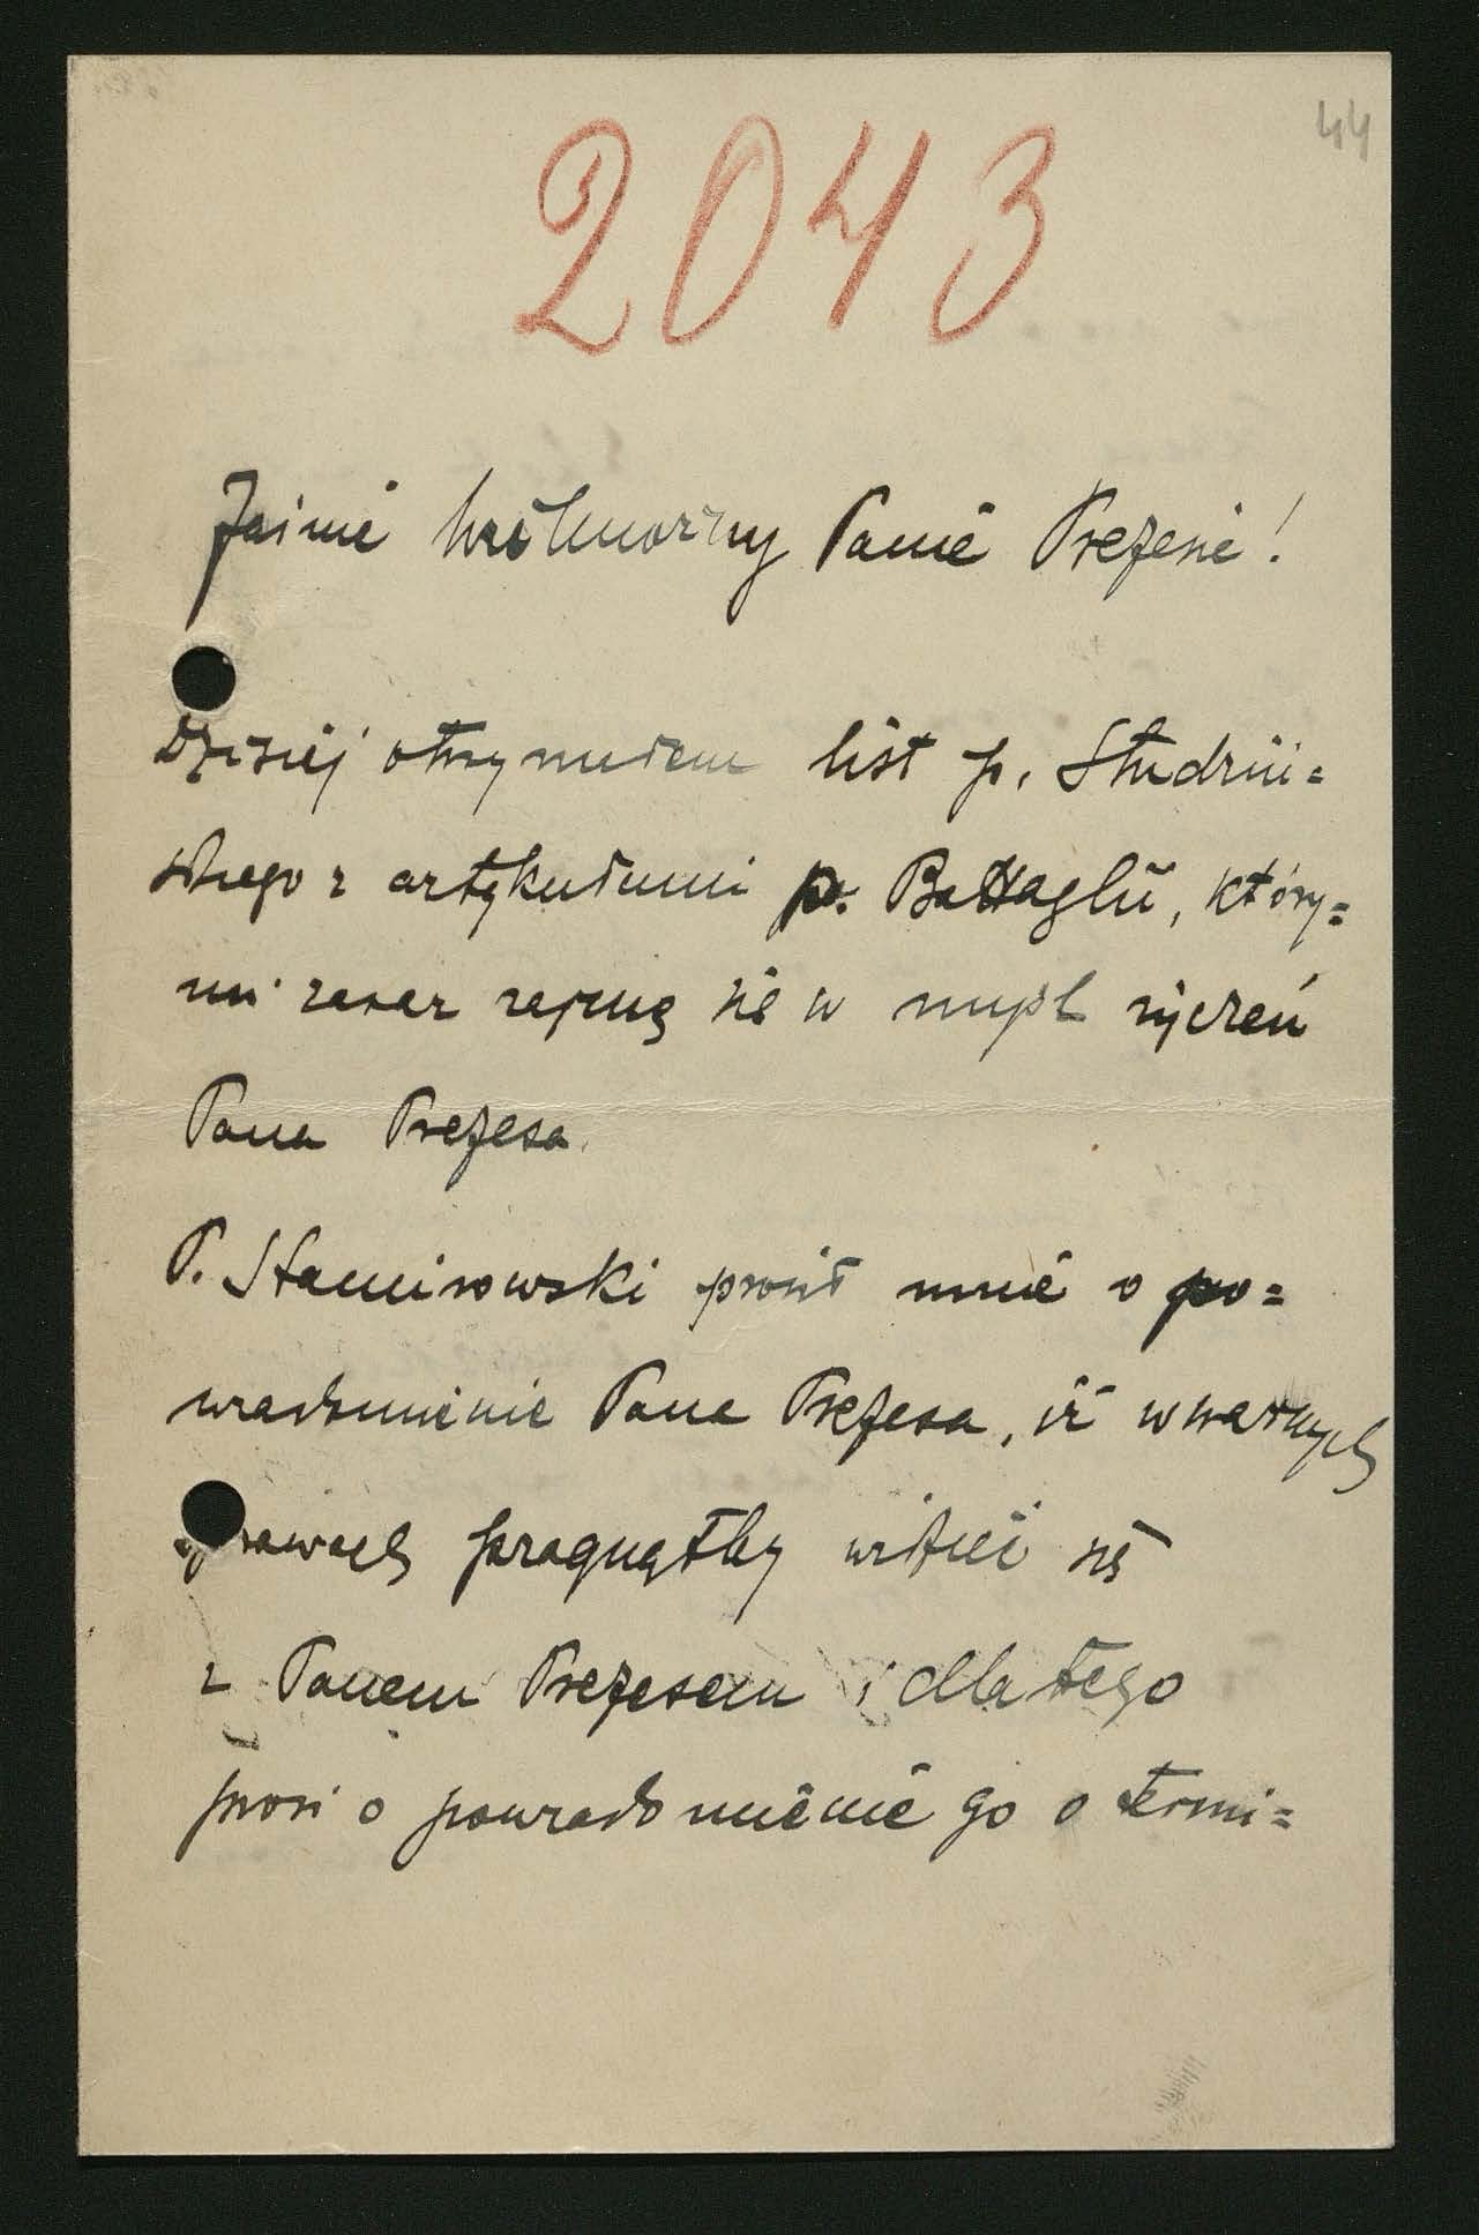 44
2043
Jaśnie Wielmożny Panie Prezesie!
Dzisiaj otrzymałem list p. Studnic=
kiego z artykułami p. Battaglii, który=
mi zaraz zajmę się w myśl życzeń
Pana Prezesa.
P. Stamirowski prosił mnie o po=
wiadomienie Pana Prezesa, iż w ważnych
sprawach pragnąłby widzieć się
z Panem Prezesem i dlatego
prosi o powiadomienie go o termi=